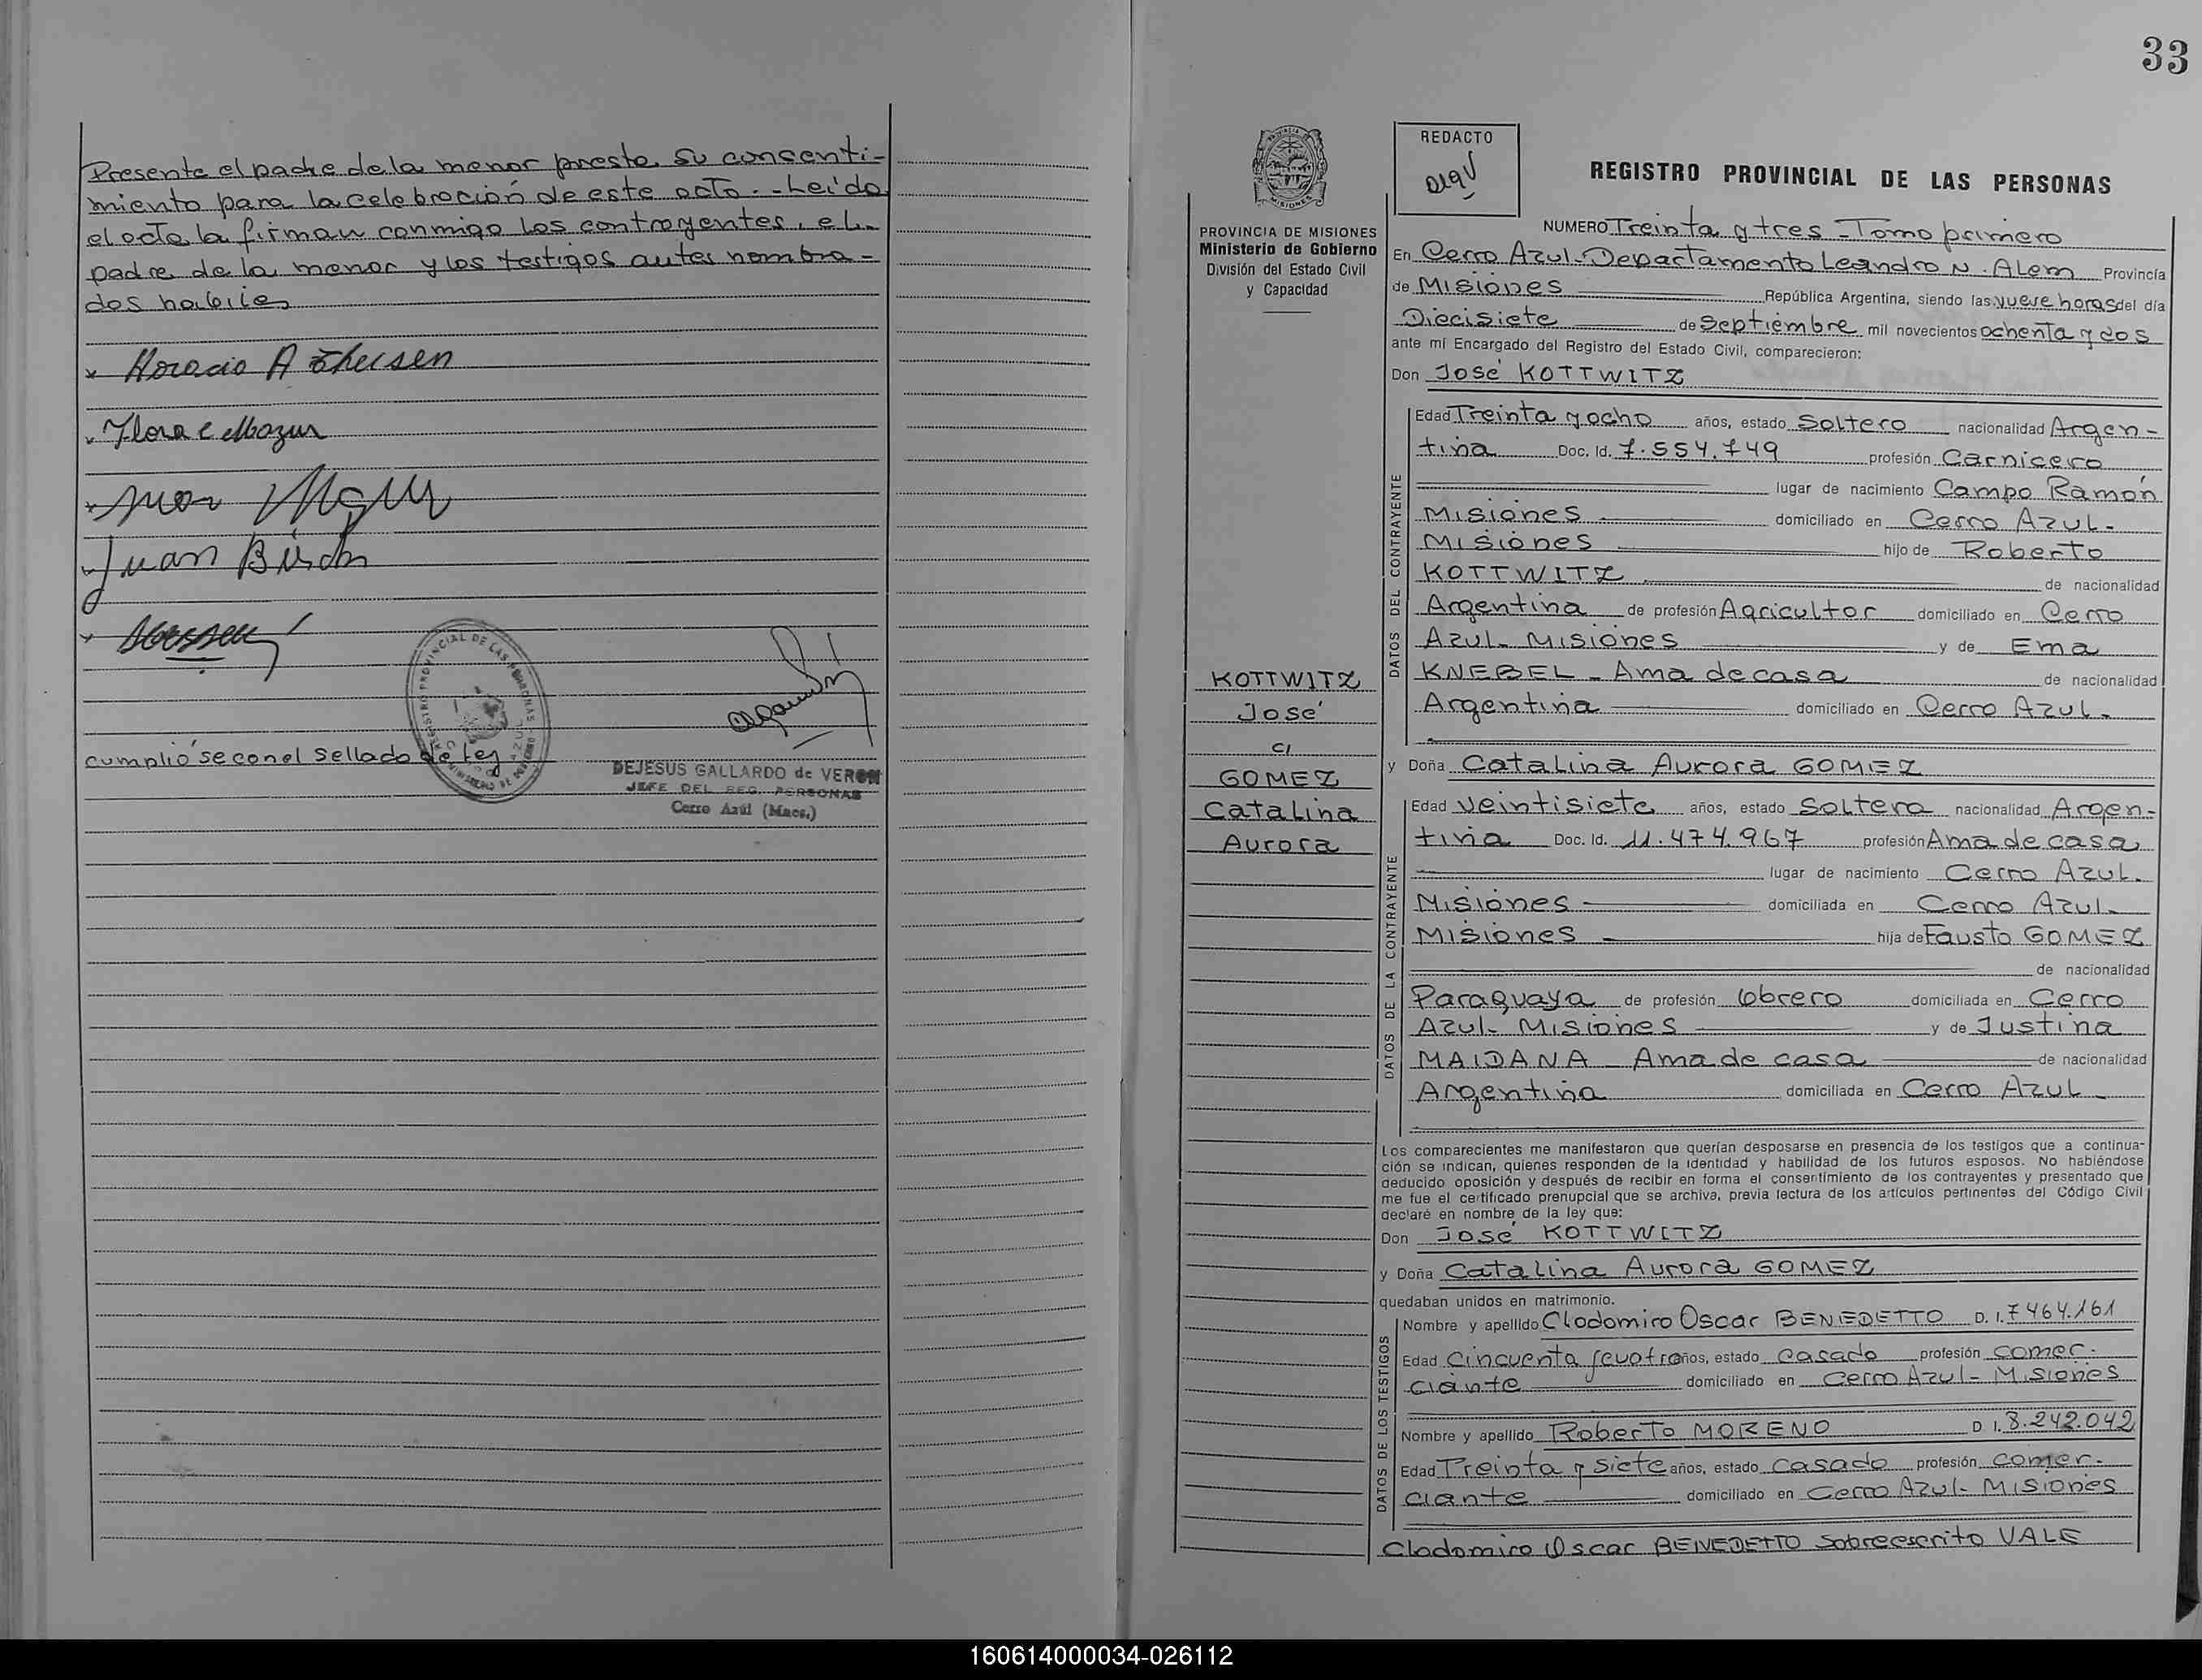 Presente el padre de la menor preste su consenti-
miento para la celebración de este acto. - Leído
el acta la firman conmigo los contrayentes, el
padre de la menor y los testigos antes nombra-
dos habiles
Horacio A Theisen
Flora E Mazur
Juan
cumplióse con el sellado de Ley
REGISTRO PROVINCIAL DE LAS PERSONAS
DEJESUS GALLARDO de VERON
JEFE DEL REG. PERSONAS
Cerro Azúl (Mnes.)
33
PROVINCIA DE MISIONES
Ministerio de Gobierno
División del Estado Civil
y Capacidad
KOTTWITZ
José
c/
GOMEZ
Catalina
Aurora
REDACTO
REGISTRO PROVINCIAL DE LAS PERSONAS
NUMERO Treinta y tres - Tomo primero
En Cerro Azul - Departamento Leandro N. Alem Provincia
de Misiones República Argentina, siendo las nueve horas del día
Diecisiete de Septiembre mil novecientos ochenta y dos
ante mí Encargado del Registro del Estado Civil, comparecieron:
Don José KOTTWITZ
DATOS DEL CONTRAYENTE
Edad Treinta y ocho años, estado Soltero nacionalidad Argen-
tina Doc. Id. 7.554.749 profesión Carnicero
lugar de nacimiento Campo Ramón
Misiones domiciliado en Cerro Azul -
Misiones hijo de Roberto
KOTTWITZ de nacionalidad
Argentina de profesión Agricultor domiciliado en Cerro
Azul - Misiones y de Ema
KNEBEL - Ama de casa de nacionalidad
Argentina domiciliado en Cerro Azul -
y Doña Catalina Aurora GOMEZ
DATOS DE LA CONTRAYENTE
Edad Veintisiete años, estado Soltera nacionalidad Argen-
tina Doc. Id. 11.474.967 profesión Ama de casa
lugar de nacimiento Cerro Azul -
Misiones domiciliada en Cerro Azul -
Misiones hija de Fausto GOMEZ
de nacionalidad
Paraguaya de profesión Obrero domiciliada en Cerro
Azul - Misiones y de Justina
MAIDANA - Ama de casa de nacionalidad
Argentina domiciliada en Cerro Azul -
Los comparecientes me manifestaron que querían desposarse en presencia de los testigos que a continua-
ción se indican, quienes responden de la identidad y habilidad de los futuros esposos. No habiéndose
deducido oposición y después de recibir en forma el consentimiento de los contrayentes y presentado que
me fue el certificado prenupcial que se archiva, previa lectura de los artículos pertinentes del Código Civil
declaré en nombre de la ley que:
Don José KOTTWITZ
y Doña Catalina Aurora GOMEZ
quedaban unidos en matrimonio.
DATOS DE LOS TESTIGOS
Nombre y apellido Clodomiro Oscar BENEDETTO D. I. 7464.161
Edad Cincuenta años, estado casado profesión comer-
ciante domiciliado en Cerro Azul - Misiones
Nombre y apellido Roberto MORENO D I. 8.242.042
Edad Treinta y siete años, estado casado profesión comer-
ciante domiciliado en Cerro Azul - Misiones
Clodomiro Oscar BENEDETTO Sobreescrito VALE
160614000034-026112